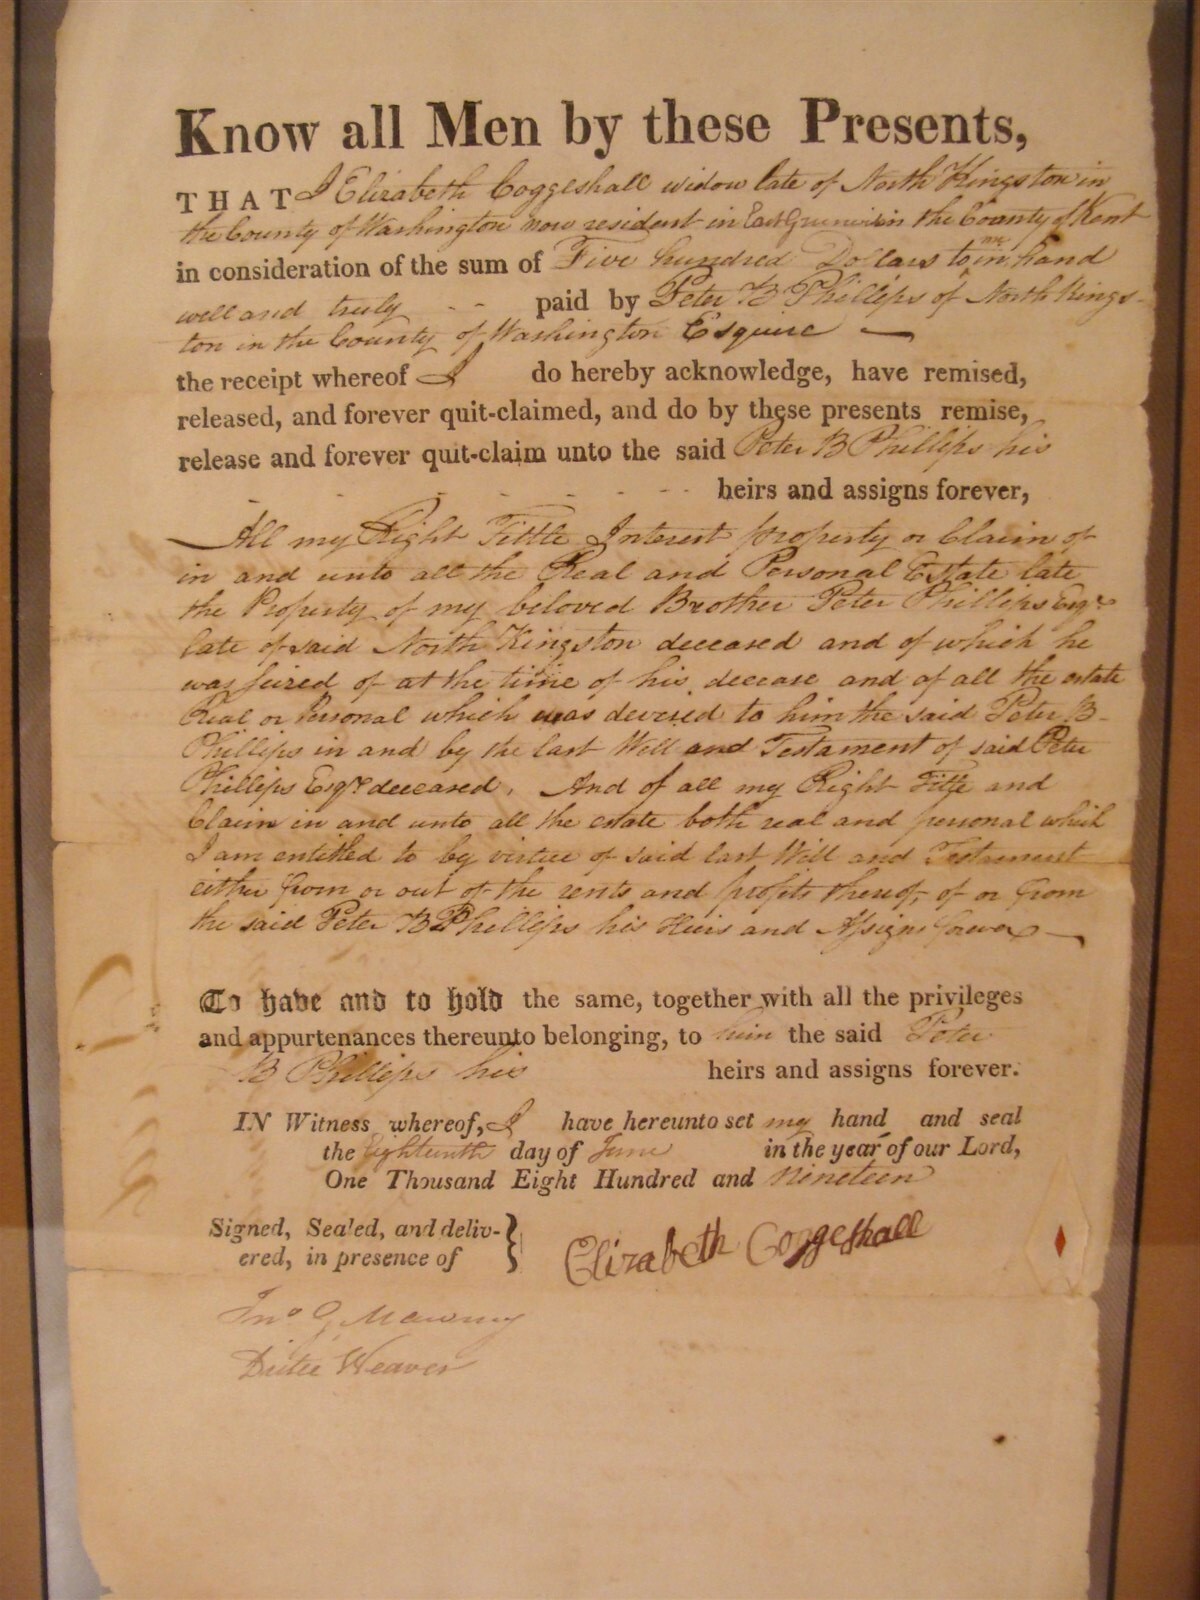 Know all Men by these Presents,
THAT I Elizabeth Coggeshall widow late of North Kingston in
the County of Washington now resident in East Greenwich in the County of Kent
in consideration of the sum of Five hundred Dollars to me in hand
well and truly - - paid by Peter B Phillips of North Kings-
ton in the County of Washington Esquire —
the receipt whereof I do hereby acknowledge, have remised,
released, and forever quit-claimed, and do by these presents remise,
release and forever quit-claim unto the said Peter B Phillips his
heirs and assigns forever,
All my Right Tittle Interest property or Claim of
in and unto all the Real and Personal Estate late
the Property of my beloved Brother Peter Phillips Esqr.
late of said North Kingston deceased and of which he
was seized of at the time of his decease and of all the estate
Real or Personal which was devised to him the said Peter B-
Phillips in and by the last Will and Testament of said Peter
Phillips Esqr. deceased. And of all my Right Title and
Claim in and unto all the estate both real and personal which
I am entitled to by virtue of said last Will and Testament
either from or out of the rents and profits thereof, of or from
the said Peter B Phillips his Heirs and Assigns forever —
To have and to hold the same, together with all the privileges
and appurtenances thereunto belonging, to him the said Peter
B Phillips his heirs and assigns forever.
IN Witness whereof, I have hereunto set my hand and seal
the Eighteenth day of June in the year of our Lord,
One Thousand Eight Hundred and Nineteen
Signed, Sealed, and deliv-
ered, in presence of
Elizabeth Coggeshall
Jno G Mawney
Weaver